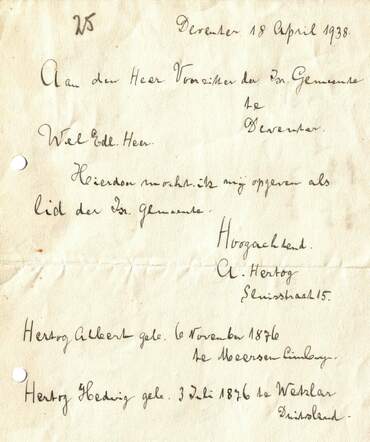 25
Deventer 18 April 1938.
Aan den Heer Voorzitter der Isr. Gemeente
te
Deventer.
Wel Edl. Heer.
Hierdoor mocht ik mij opgeven als
lid der Isr. Gemeente.
Hoogachtend.
A. Hertog
Sluisstraat 15.
Hertog Albert geb. 6 November 1876
te Meersen Limburg.
Hertog Hedwig geb. 3 Juli 1876 te Wetzlar
Duitsland.